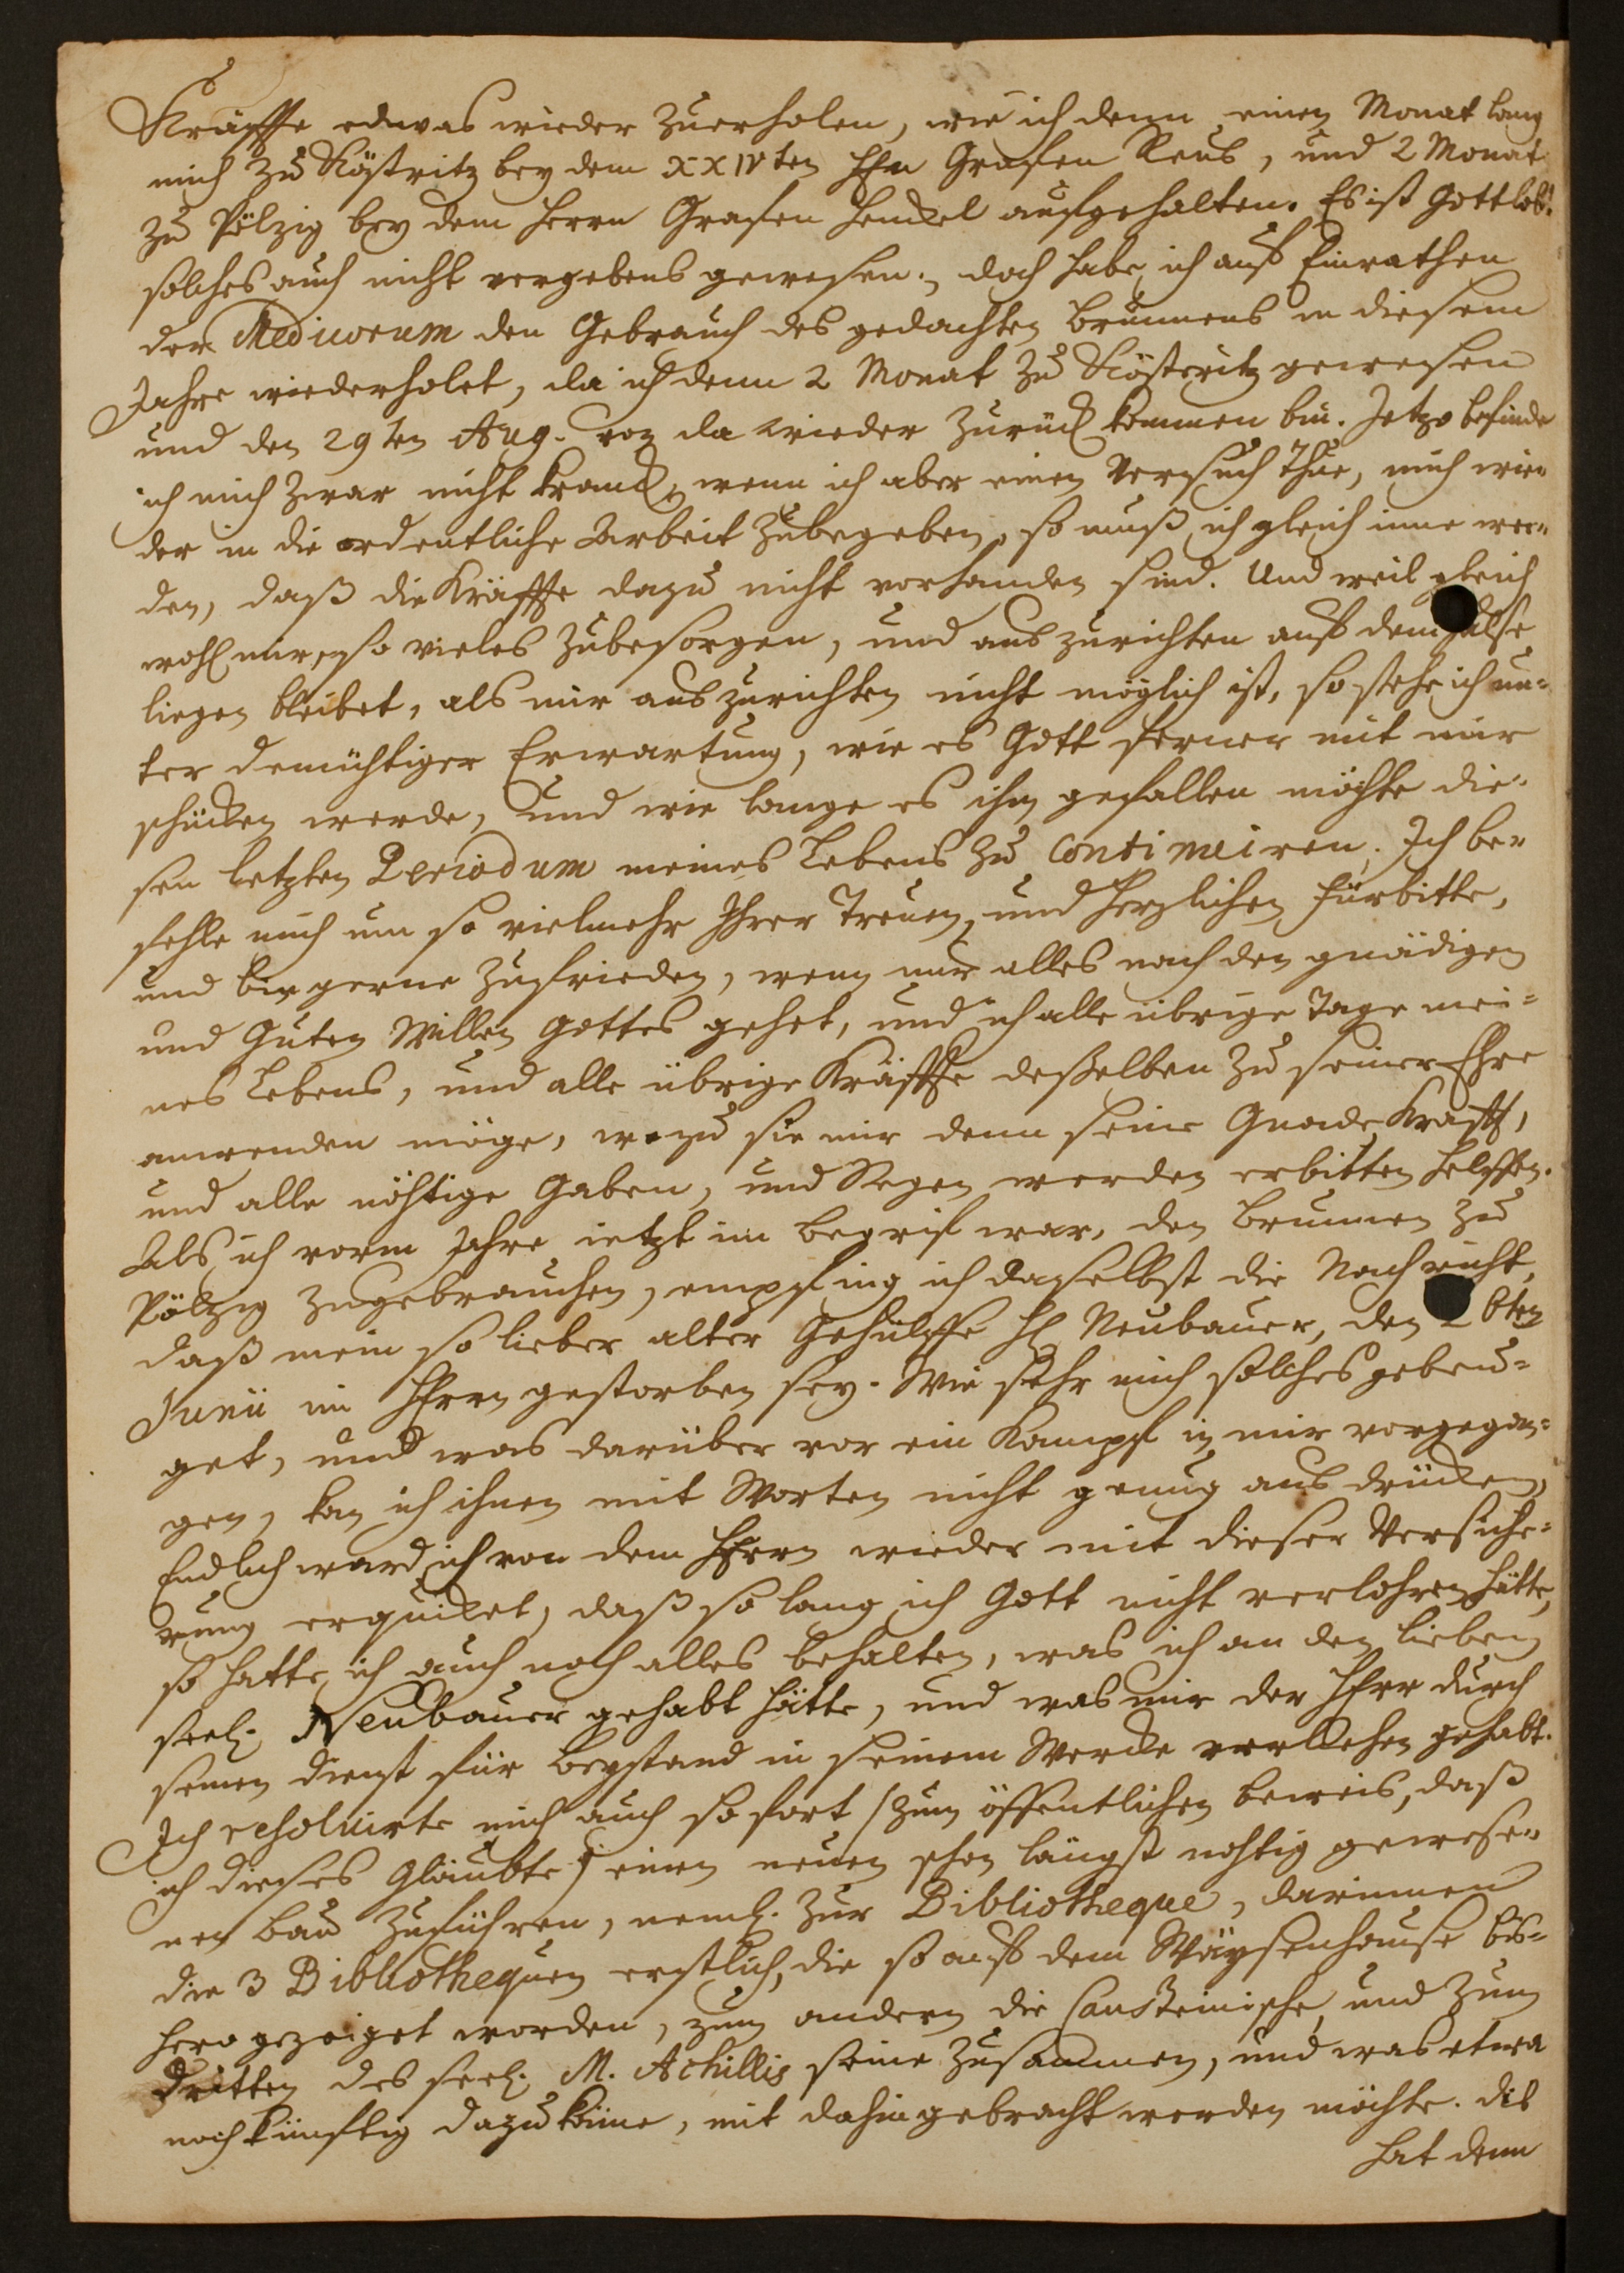 Kräffte etwas wieder zuerholen, wie ich denn einen Monat lang
mich zu Köstritz bey dem XXIVten Hrn Grafen Reus, und 2 Monat
zu Pölzig bey dem Herrn Grafen Henckel aufgehalten. Es ist Gottlob!
solches auch nicht vergebens gewesen; doch habe ich auf Einrathen
der Medicorum den Gebrauch des gedachten Brunnens in diesem
Jahre wiederholet, da ich denn 2 Monat zu Kösteritz gewesen
und den 29ten Aug. von da wieder zurück kommen bin. Jetzo befinde
ich mich zwar nicht kranck, wenn ich aber einen Versuch thue, mich wie-
der in die ordentliche Arbeit zubegeben, so muß ich gleich inne wer-
den, daß die Kräffte dazu nicht vorhanden sind. Und weil gleich
wohl mir, so vieles zubesorgen, und auszurichten auf dem Halse
liegen bleibet, als mir auszurichten nicht möglich ist, so stehe ich un-
ter demüthiger Erwartung, wie es Gott ferner mit mir
schicken werde, und wie lange es ihm gefallen möchte die-
sen letzten Periodum meines Lebens zu continuiren. Ich be-
fehle mich um so vielmehr Ihrer Treuen, und herzlichen Fürbitte,
und bin gerne zufrieden, wenn nur alles nach den gnädigen
und Guten Willen Gottes gehet, und ich alle übrige Tage mei-
nes Lebens, und alle übrige Kräffte deßelben zu seiner Ehre
anwenden möge, wozu sie mir denn seine Gnade, Krafft,
und alle nöhtige Gaben, und Segen werden erbitten helffen.
Als ich vorm Jahre ietzt im begrif war, den Brunnen zu
Pölzig zugebrauchen, empfing ich daselbst die Nachricht,
daß mein so lieber alter Gehülffe H. Neubauer, den 6ten
Junii im Herrn gestorben sey. Wie sehr mich solches gebeu-
get, und was darüber vor ein Kampf in mir vorgegan-
gen, kan ich ihnen mit Worten nicht genug ausdrücken,
Endlich ward ich von dem Herrn wieder mit dieser Versiche-
rung erquicket, daß so lang ich Gott nicht verlohren hätte,
so hatte ich auch noch alles behalten, was ich an den lieben
seel. Neubauer gehabt hätte, und was mir der Herr durch
seinen Dienst für beystand in seinem Wercke verliehen gehabt.
Ich resolvirte mich auch sofort (zum öffentlichen beweis, daß
ich dieses Gläubte) einen neuen schon längst nohtig gewese-
nen Bau zuführen, neml. zur Bibliotheque, darinnen
die 3 Bibliothequen erstlich, die so auf dem Wäysenhause bis-
hero gezeiget worden, zum andern die Cansteinische, und zum
dritten des seel. M. Achillis seine zusammen, und was etwa
noch künftig dazu käme, mit dahin gebracht werden möchte. Dis
hat denn